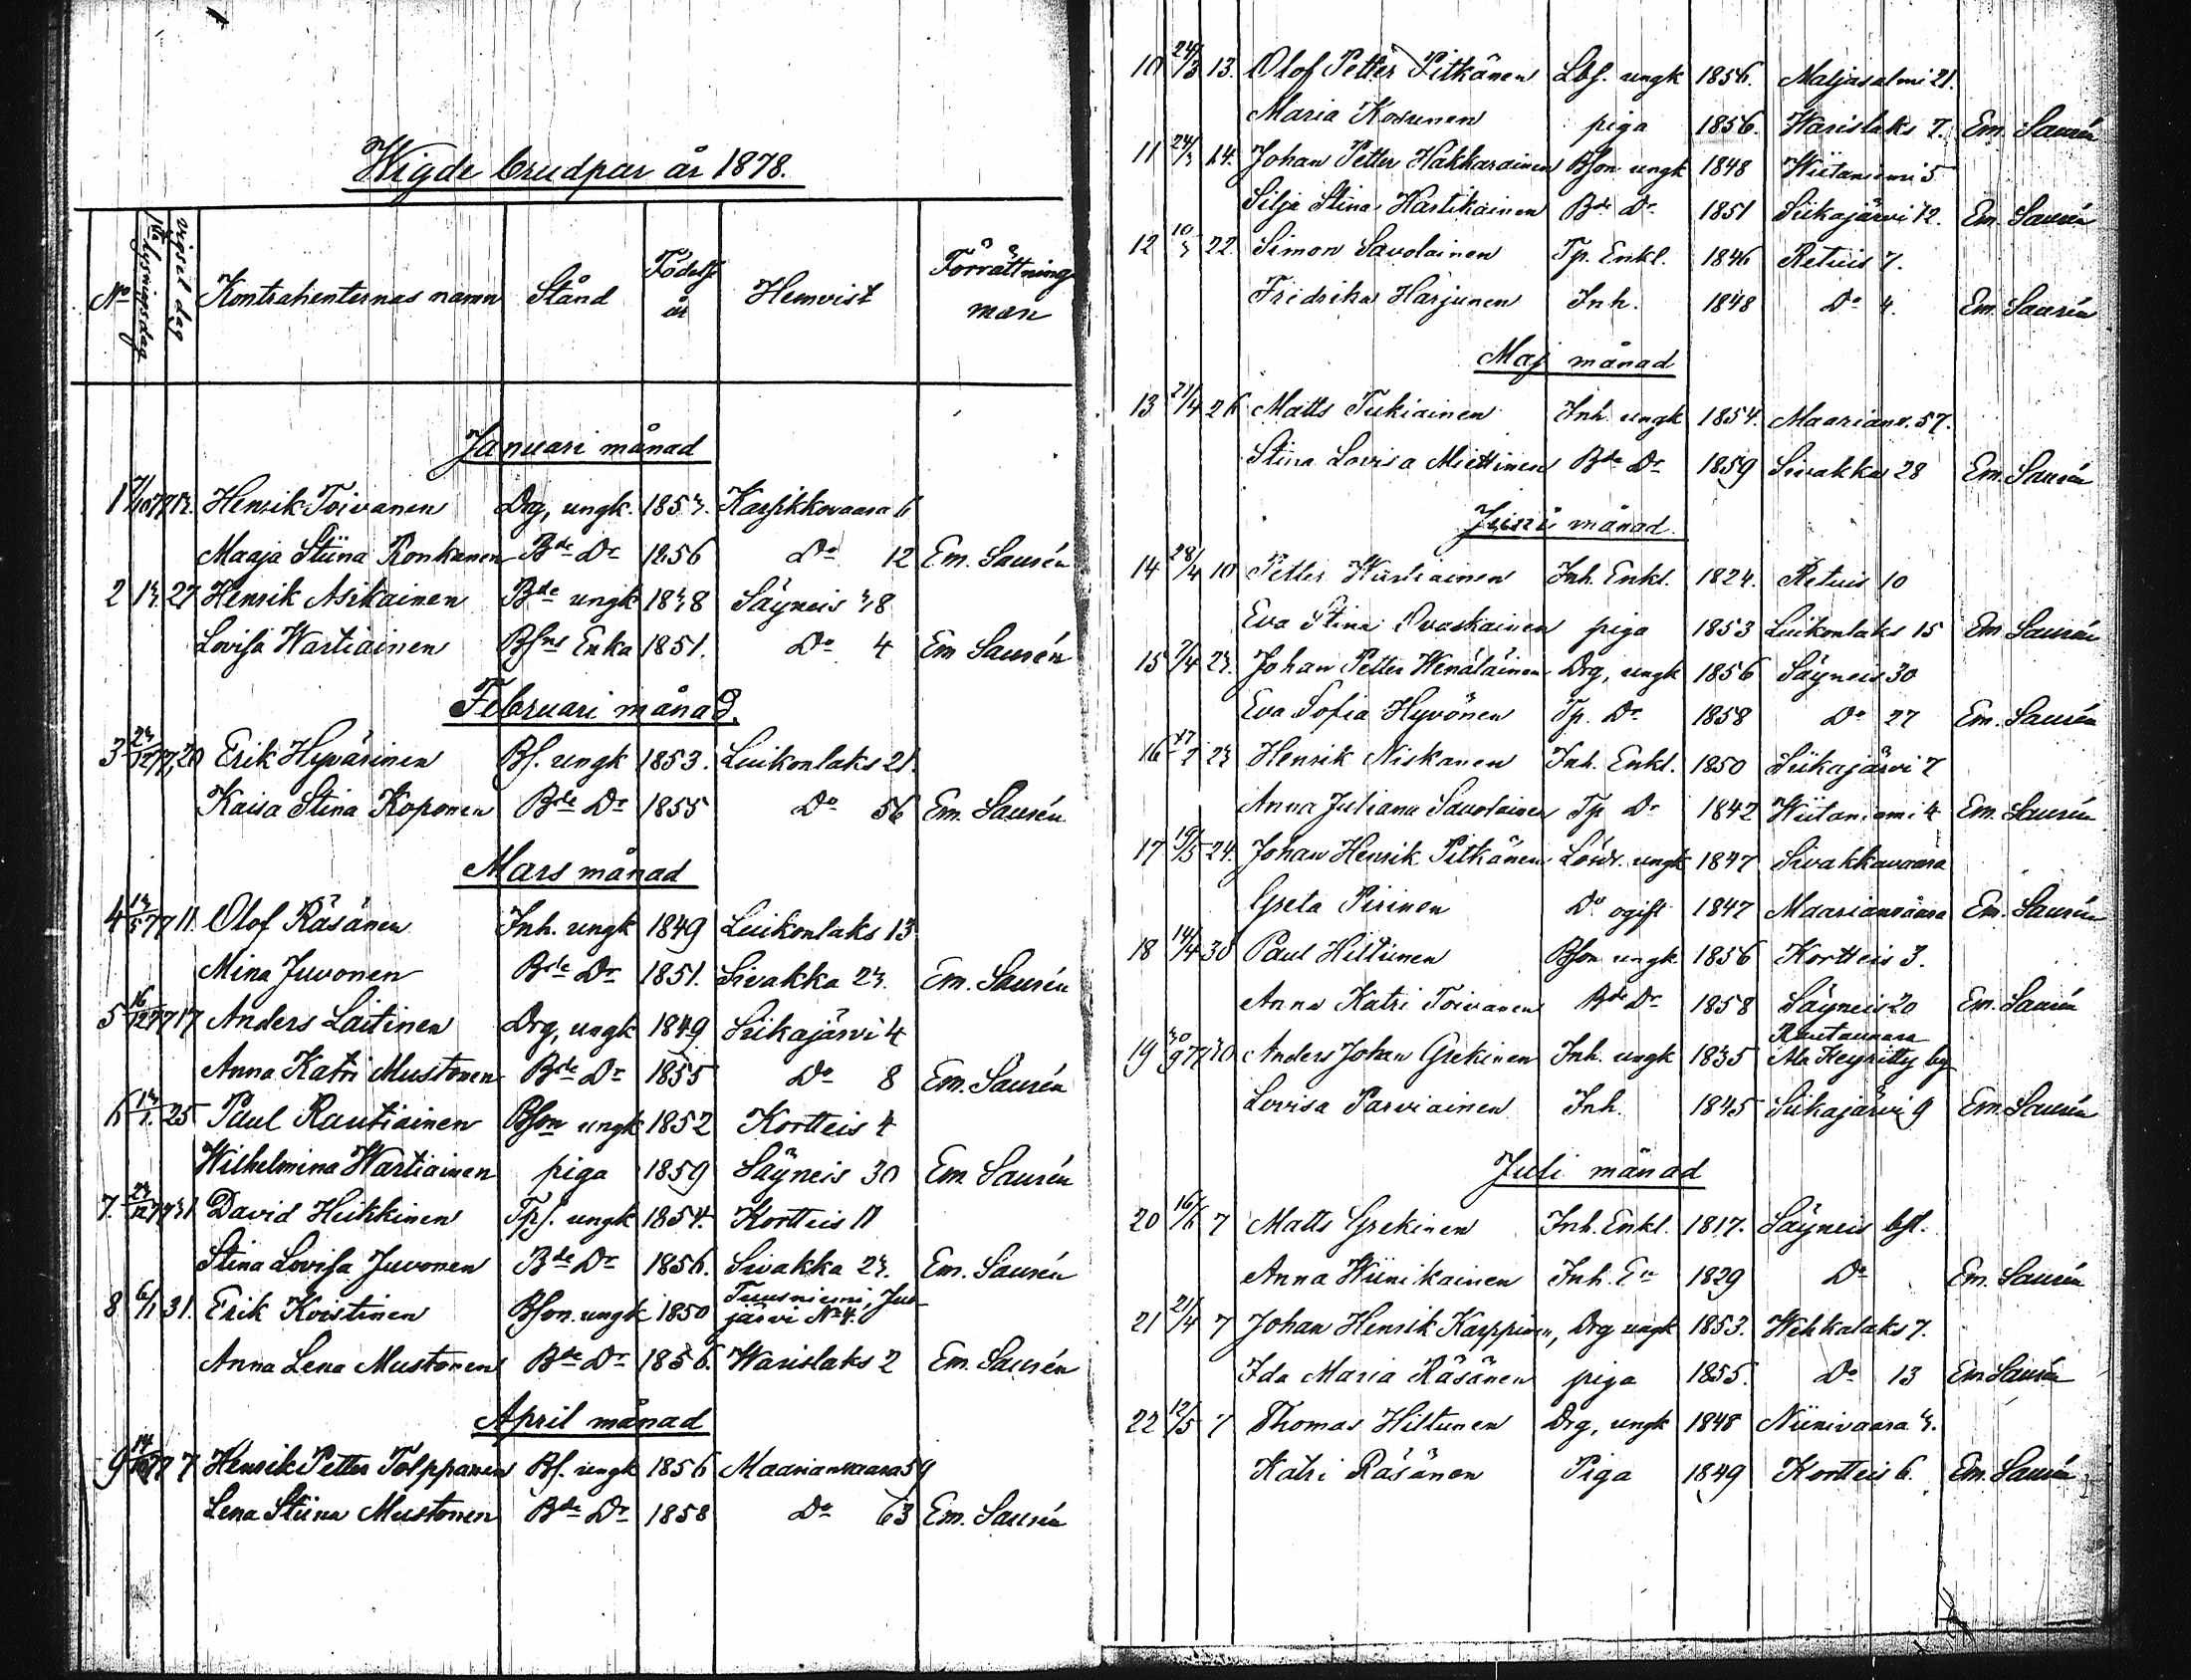 Wigde brudpar år 1878.
No 1sta lysningsdag vigsel dag Kontrahenternas namn Stånd Födelse år Hemvist Förrättnings man
Januari månad
1 Henrik Toivanen Drg, ungk. 1853. Karsikkovaara 6
Maaja Stiina Ronkanen Bde Dr 1856 Do 12 Em. Saurén
2 13. 27 Henrik Asikainen Bde ungk 1838 Säyneis 38
Lovisa Wartiainen Bsns Enka 1851. Do 4 Em Saurén
Februari månad.
3 23/12 77, 20 Erik Hyvärinen Bs. ungk 1853. Luikonlaks 21.
Kaisa Stina Koponen Bde Dr 1855 Do 56 Em. Saurén
Mars månad
4 11. Olof Räsänen Inh. ungk 1849 Luikonlaks 13
Mina Juvonen Bde Dr 1851. Sivakka 23. Em. Saurén
5 16/12 77 17 Anders Laitinen Drg, ungk 1849 Siikajärvi 4
Anna Katri Mustonen Bde Dr 1855 Do 8 Em. Saurén
6 13/1. 25 Paul Rautiainen Bson ungk 1852 Kortteis 4
Wilhelmina Wartiainen piga 1859 Säyneis 30 Em Saurén
7. 23/12 77 31 David Heikkinen Tps. ungk 1854. Kortteis 11
Stina Lovisa Juvonen Bde Dr 1856. Sivakka 23. Em. Saurén
8 6/1 31. Erik Koistinen Bson. ungk 1850 Tuusniemi, Jus-
järvi No 4.
Anna Lena Mustonen Bde Dr 1856. Warislaks 2 Em. Saurén
April månad
9 14/10 77 7 Henrik Petter Tolppanen Bs. ungk 1856 Maarianvaara 59
Lena Stiina Mustonen Bde Dr 1858 Do 63 Em. Saurén
10 24/3 13. Olof Petter Pitkänen Lbs. ungk 1856. Maljasalmi 21.
Maria Kosunen piga 1856. Warislaks 7. Em. Saurén
11 24/3 14. Johan Petter Hakkarainen Bson ungk 1848 Wiitaniemi 5
Silja Stina Hartikainen Bde Dr 1851 Siikajärvi 12. Em. Saurén
12 10/3 22. Simon Savolainen Tp. Enkl. 1846 Retuis 7.
Fridrika Harjunen Inh. 1848 Do 4. Em. Saurén
Maj månad
13 21/4 26 Matts Tukiainen Inh. ungk 1854. Maarianv. 57.
Stina Lovisa Miettinen Bde Dr 1859 Sivakka 28 Em. Saurén
Juni månad.
14 28/4 10 Petter Wartiainen Inh. Enkl. 1824. Retuis 10
Eva Stina Ovaskainen piga 1853 Luikonlaks 15 Em Saurén
15 7/4 23. Johan Petter Wenäläinen Drg, ungk 1856 Säyneis 30
Eva Sofia Hyvönen Tp. Dr 1858 Do 27 Em. Saurén
16 17/2 23 Henrik Niskanen Inh. Enkl. 1850 Siikajärvi 7
Anna Juliana Savolainen Tp Dr 1842 Wiitaniemi 4 Em. Saurén
17 19/5 24. Johan Henrik Pitkänen Lösdr. ungk 1847 Sivakkavaara
Greta Pirinen Do ogift 1847 Maarianvaara Em. Saurén
18 14/4 30 Paul Hiltunen Bson ungk 1856 Kortteis 3.
Anna Katri Toivanen Bde Dr 1858 Säyneis 20 Em. Saurén
19 30/9 77 30 Anders Johan Grekinen Inh. ungk 1835 Rautavaara
Ala Keyritty by
Lovisa Parviainen Inh. 1845 Siikajärvi 9 Em. Saurén
Juli månad
20 16/6 7 Matts Grekinen Inh. Enkl. 1817. Säyneis bst.
Anna Wiinikainen Inh. En 1829 Do Em. Saurén
21 21/4 7 Johan Henrik Karppinen, Drg ungk 1853. Wehkalaks 7.
Ida Maria Räsänen piga 1855. Do 13 Em Saurén
22 12/5 7 Thomas Hiltunen Drg, ungk 1848 Niinivaara 3.
Katri Räsänen Piga 1849 Kortteis 6. Em. Saurén